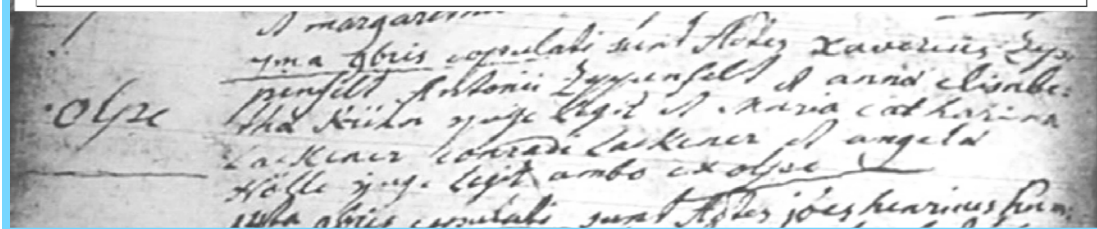 et margaretha
9ma 9bris copulati sunt Hdes Xaverius Zep:
penfelt Antonii Zeppenfelt et anna elisabe:
olpe tha yuge legit et Maria catharina
Lackener conradi Lackener et angela
Nölle yuge legit ambo ex olpe
9bris copulati sunt Hdes joes henricus